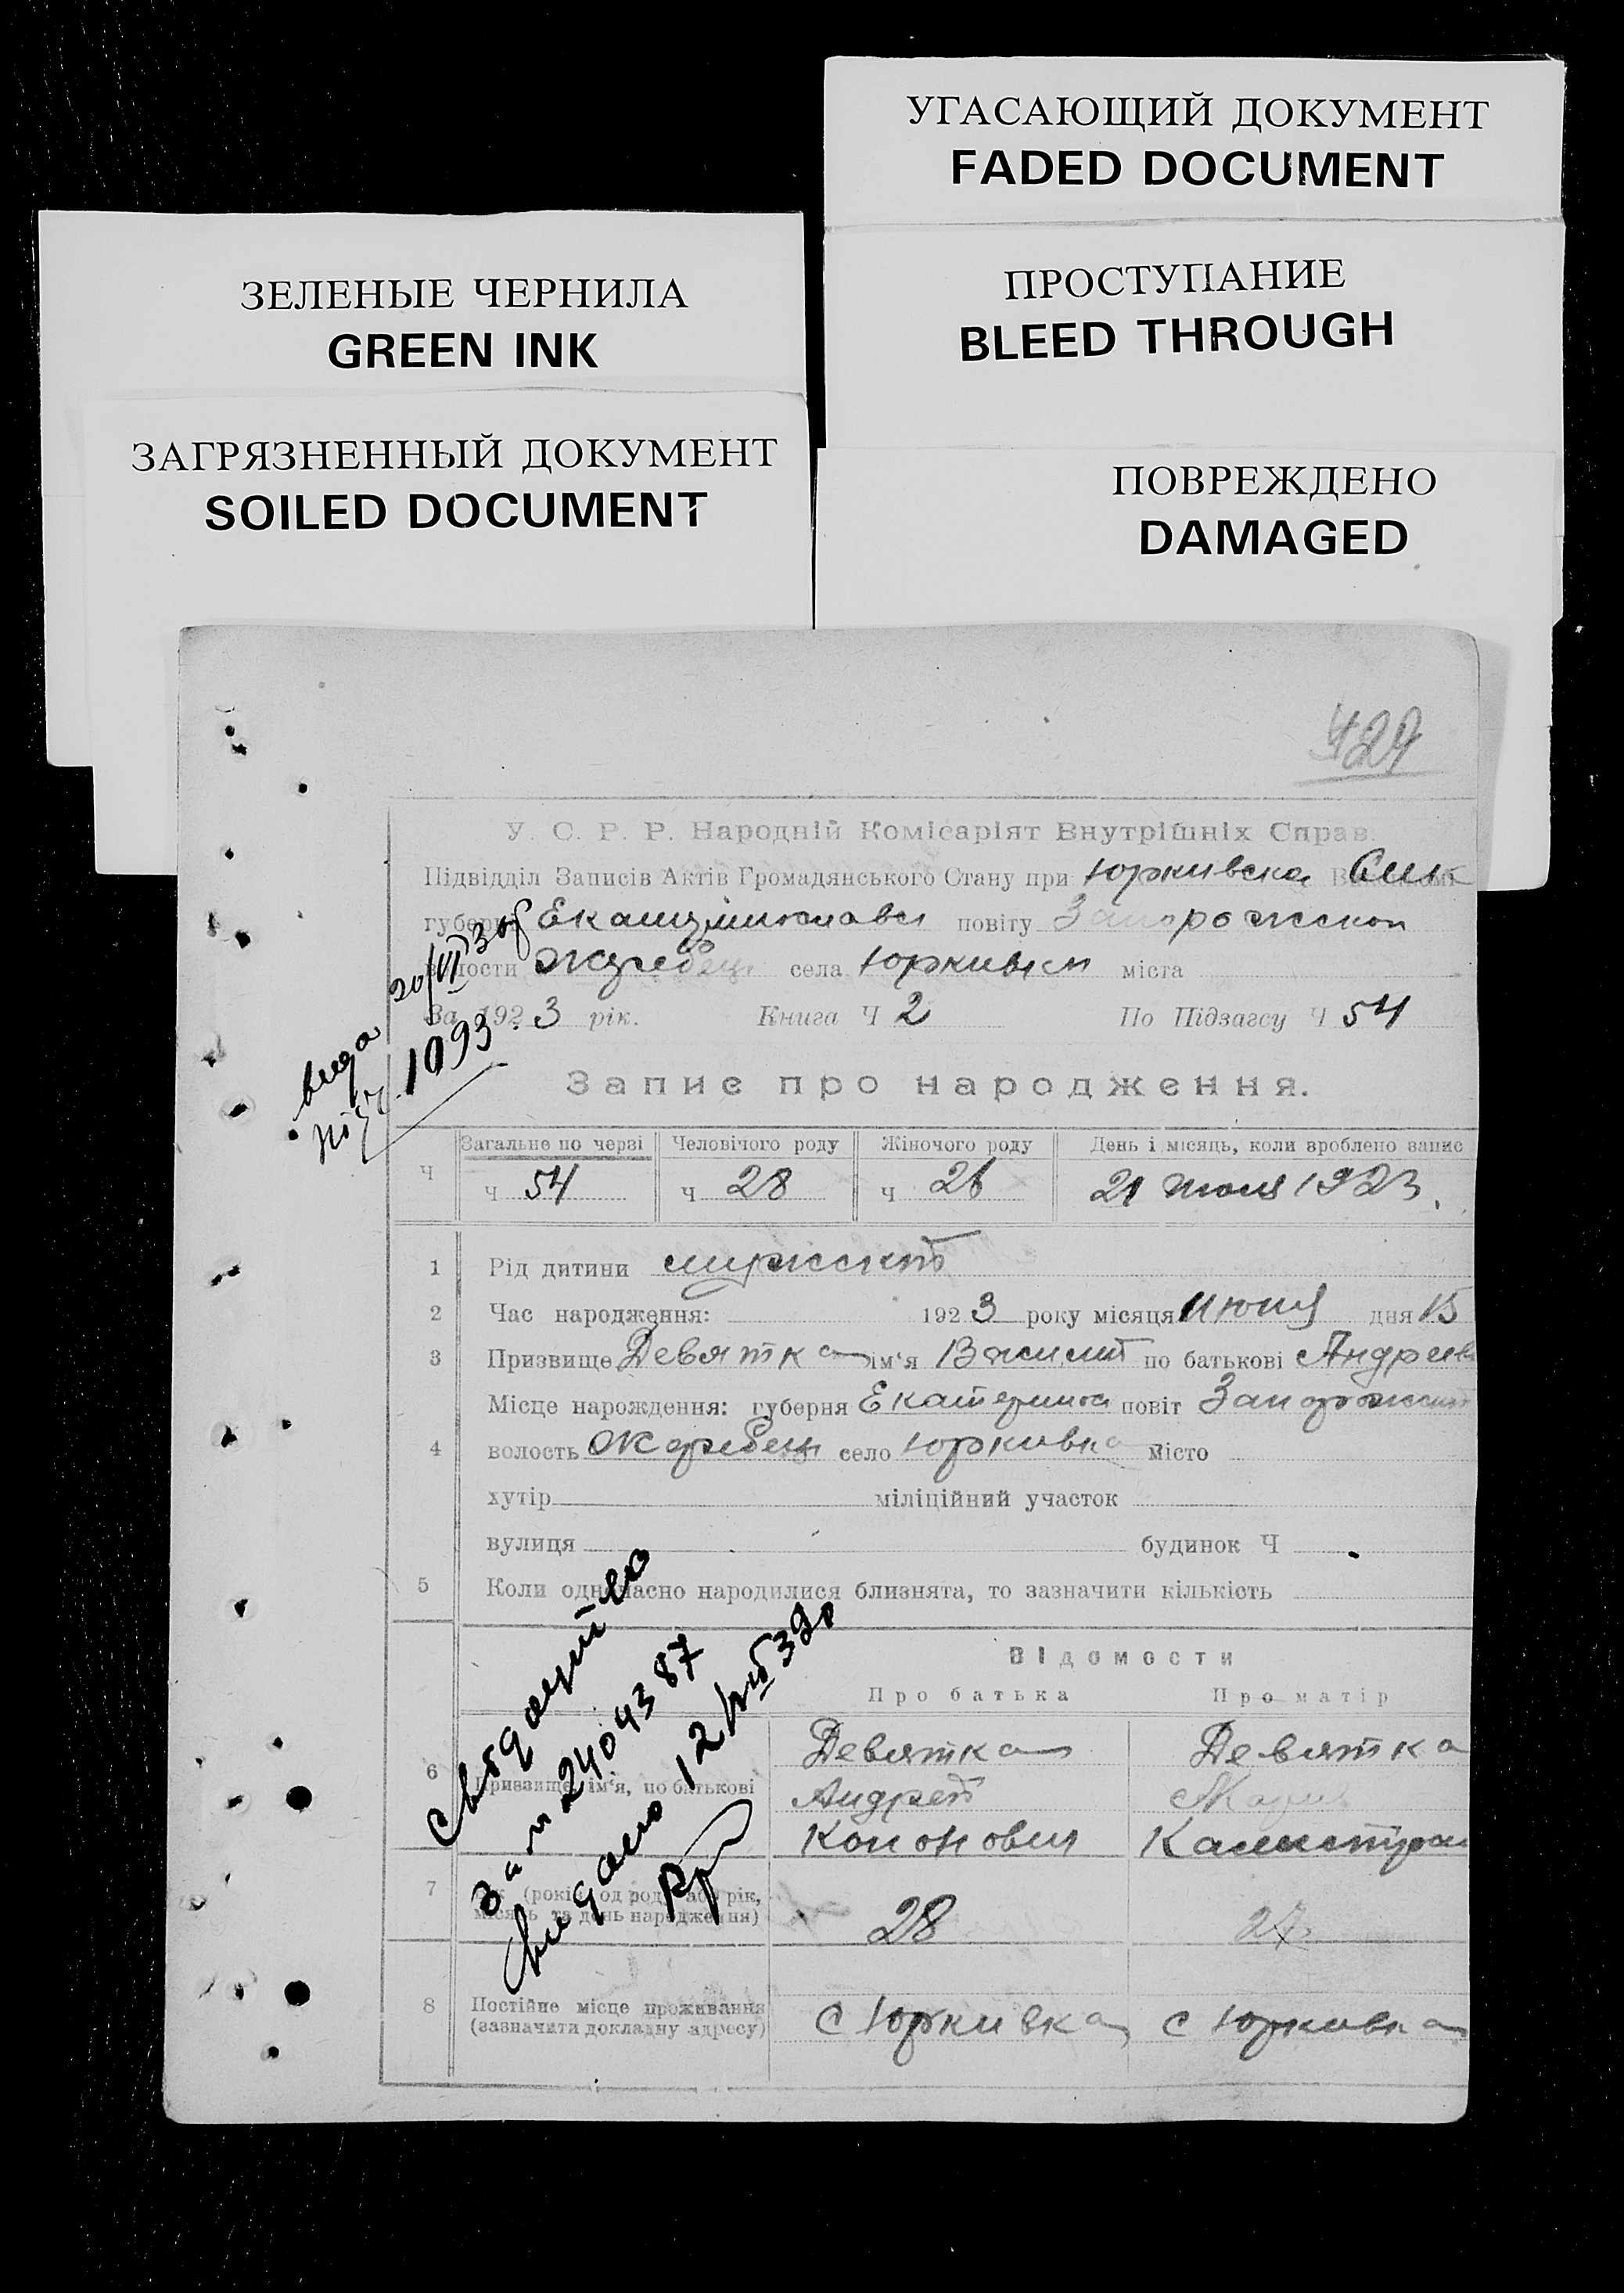 УГАСАЮЩИЙ ДОКУМЕНТ
FADED DOCUMENT
ЗЕЛЕНЫЕ ЧЕРНИЛА
GREEN INK
ПРОСТУПАНИЕ
BLEED THROUGH
ЗАГРЯЗНЕННЫЙ ДОКУМЕНТ
SOILED DOCUMENT
ПОВРЕЖДЕНО
DAMAGED
У. С. Р. Р. Народній Комісаріят Внутрішніх Справ.
Підвідділ Записів Актів Громадянського Стану при Юркивска
губерн Екатиринославск повіту Запорожской
волости Жеребец села Юркивки міста
За 1923 рік. Книга Ч 2 По Підзагсу Ч 54
1093
Запис про народження.
Загальне по черзі Человічого роду Жіночого роду День і місяць, коли зроблено запис
Ч ч 54 ч 28 ч 26 21 июня 1923.
1 Рід дитини мужской
2 Час народження: 1923 року місяця Июня дня 15
3 Призвище Девятка ім'я по батькові Андреев
Місце народження: губерня Екатерино повіт Запорожский
4 волость Жеребец село Юркивка місто
хутір міліційний участок
вулиця будинок Ч
5 Коли одночасно народилися близнята, то зазначити кількість
Відомости
Про батька Про матір
6 Призвище, ім'я, по батькові
Девятка Девятка
Андрей Мария
Кононович Калистрат
7 (років од роду або рік, місяць та день народження) 28 27
8 Постійне місце проживання (зазначити докладну адресу) с Юркивка с Юркивка
2404387